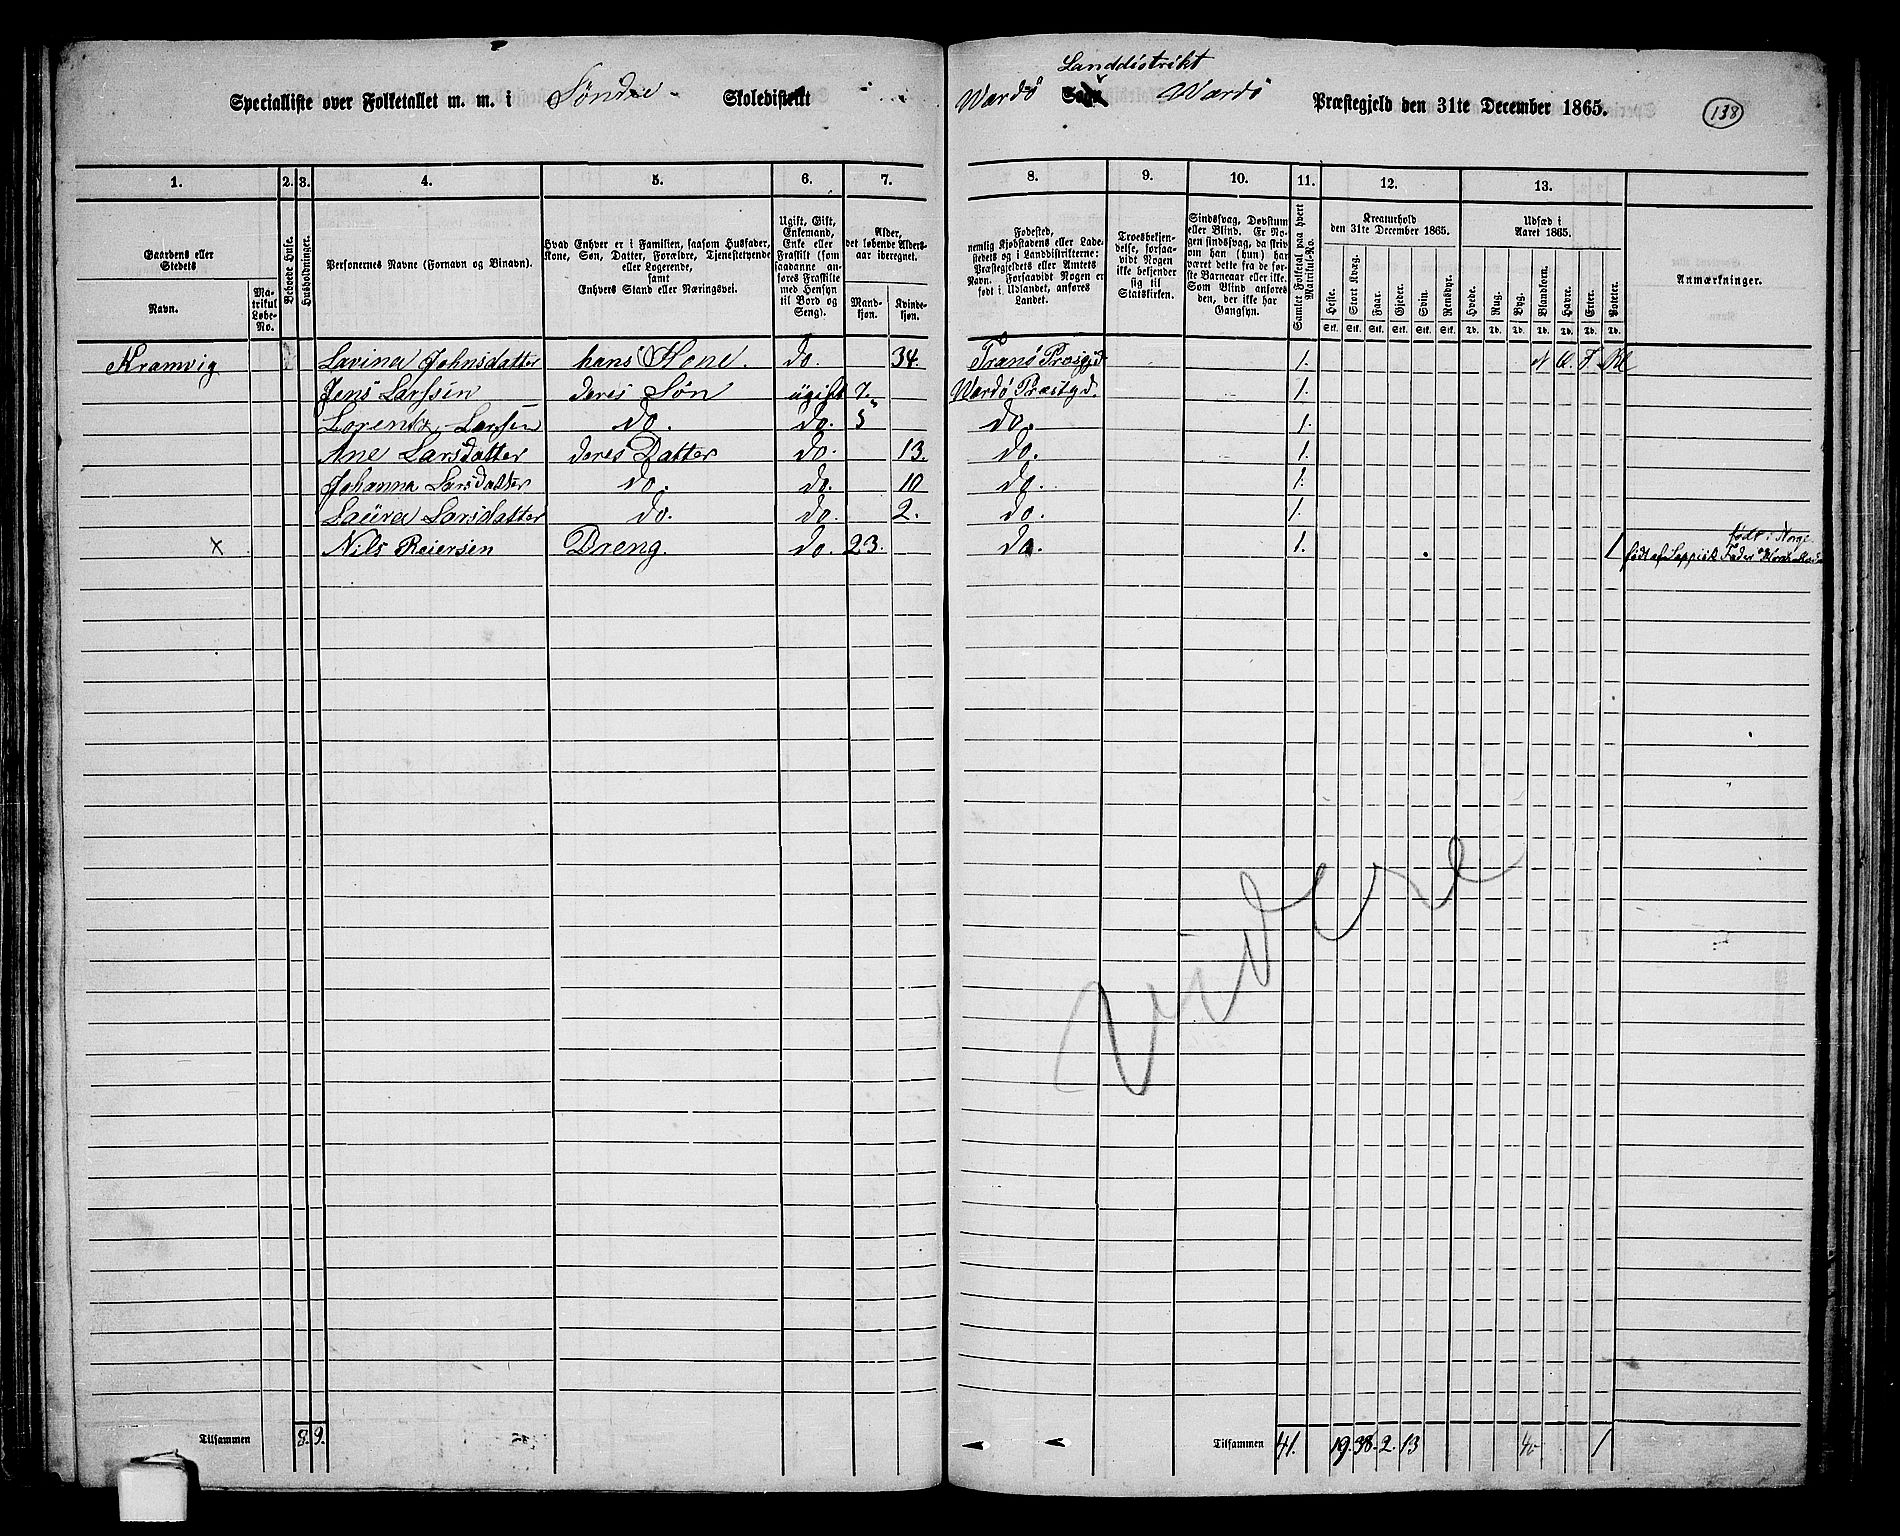 Specialliste over Folketallet m. m. i Søndre Skoledistrikt
Landdistrikt
Vardø Sogn Vardø Præstegjeld den 31te December 1865.
138
1. 2. 3. 4. 5. 6. 7.
8. 9. 10. 11. 12. 13.
Gaardens eller Stedets
Navn.
Matrikul Løbe-No.
Beboede Huse.
Husholdninger.
Personernes Navne (Fornavn og Binavn).
Hvad Enhver er i Familien, saasom Husfader,
Kone, Søn, Datter, Forældre, Tjenestetyende
eller Logerende,
samt
Enhvers Stand eller Næringsvei.
Ugift, Gift,
Enkemand,
Enke eller
Fraskilt (som
saadanne anføres Fraskilte
med Hensyn
til Bord og
Seng).
Alder,
det løbende Alders-
aar iberegnet.
Mandkjøn.
Kvindekjøn.
Fødested,
nemlig Kjøbstadens eller Lade-
stedets og i Landdistrikterne:
Præstegjeldets eller Amtets
Navn. Forsaavidt Nogen er
født i Udlandet, anføres
Landet.
Troesbekjen-
delse, forsaa-
vidt Nogen
ikke bekjender
sig til
Statskirken.
Sindssvag, Døvstum
eller Blind. Er No-
gen sindssvag, da skriv
om han (hun) har
været dette fra de før-
ste Barneaar eller ikke.
Som Blind anføres
den, der ikke har
Gangsyn.
Samlet Folketal paa hvert Matrikul-No.
Kreaturhold
den 31te December 1865.
Heste. Stort Kvæg. Faar. Gjeder. Svin. Rensdyr.
Stk. Stk. Stk. Stk. Stk. Stk.
Udsæd i
Aaret 1865.
Hvede. Rug. Byg. Blandkorn. Havre. Erter. Poteter.
Td. Td. Td. Td. Td. Td. Td.
Anmærkninger.
Kramvig Lavina Johnsdatter hans Kone. do. 34. Tranø Præsgjd. 1.
Jens Larssen deres Søn ugift 7. Vardø Præstgd. 1.
Lorentz Larsen do. do. 5 do. 1.
Ane Larsdatter deres Datter do. 13. do. 1.
Johanna Larsdatter do. do. 10 do. 1.
Laura Larsdatter do. do. 2. do. 1.
født i Norge
x Nils Reiersen Dreng. do. 23. do. 1. 1 født af Lappisk Fader
Videre
Tilsammen 8. 9.
Tilsammen 41. 19. 38. 2. 13 1